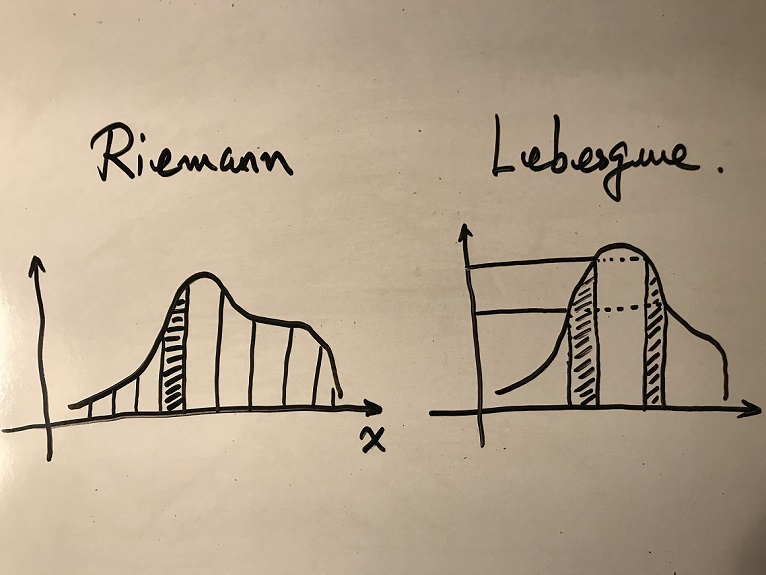 Riemann
Lebesgue.
x